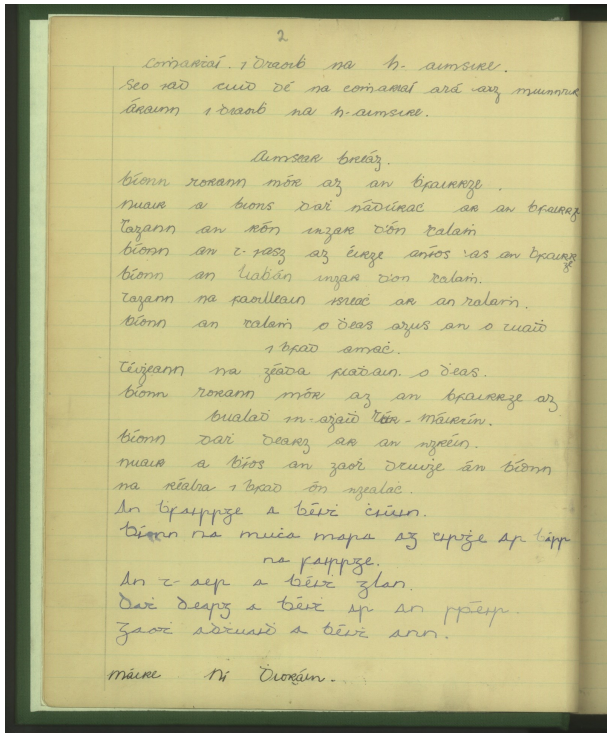 2
Comarṫaí . i dtaoiḃ na h-aimsire.
Seo iad cuid dé na comarṫaí atá ag muinntir
Árainn i dtaoiḃ na h-aimsire.
Aimsear breáġ.
Bíonn torann mór ag an ḃfairrge.
nuair a bíons daṫ nádúraċ ar an ḃfairrge
Tagann an rón ingar d'on talaṁ
bíonn an t-iasg ag éirġe aníos as an ḃfairrge
bíonn an liaḃán ingar d'on talaṁ.
Tagann na faoilleain isteaċ ar an talaṁ.
bíonn an talaṁ o ḋeas agus an o tuaiḋ
i ḃfad amaċ.
Téiġeann na géaḋa fiaḋain o ḋeas.
bíonn torann mór ag an ḃfairrge ag
bualaḋ in-aġaiḋ máirtín.
bíonn daṫ dearg ar an ngréin.
nuair a ḃíos an gaoṫ bíonn
na réalta i ḃfad ón ngealaċ.
An ḃfairrge a ḃéiṫ ciúin.
Bíonn na muca mara ag eirġe ar barr
na fairrge.
An t-aer a ḃéiṫ glan.
Daṫ dearg a ḃéiṫ ar an
Gaoṫ aduaiḋ a ḃéiṫ ann.
Máire Ní Dioráin.